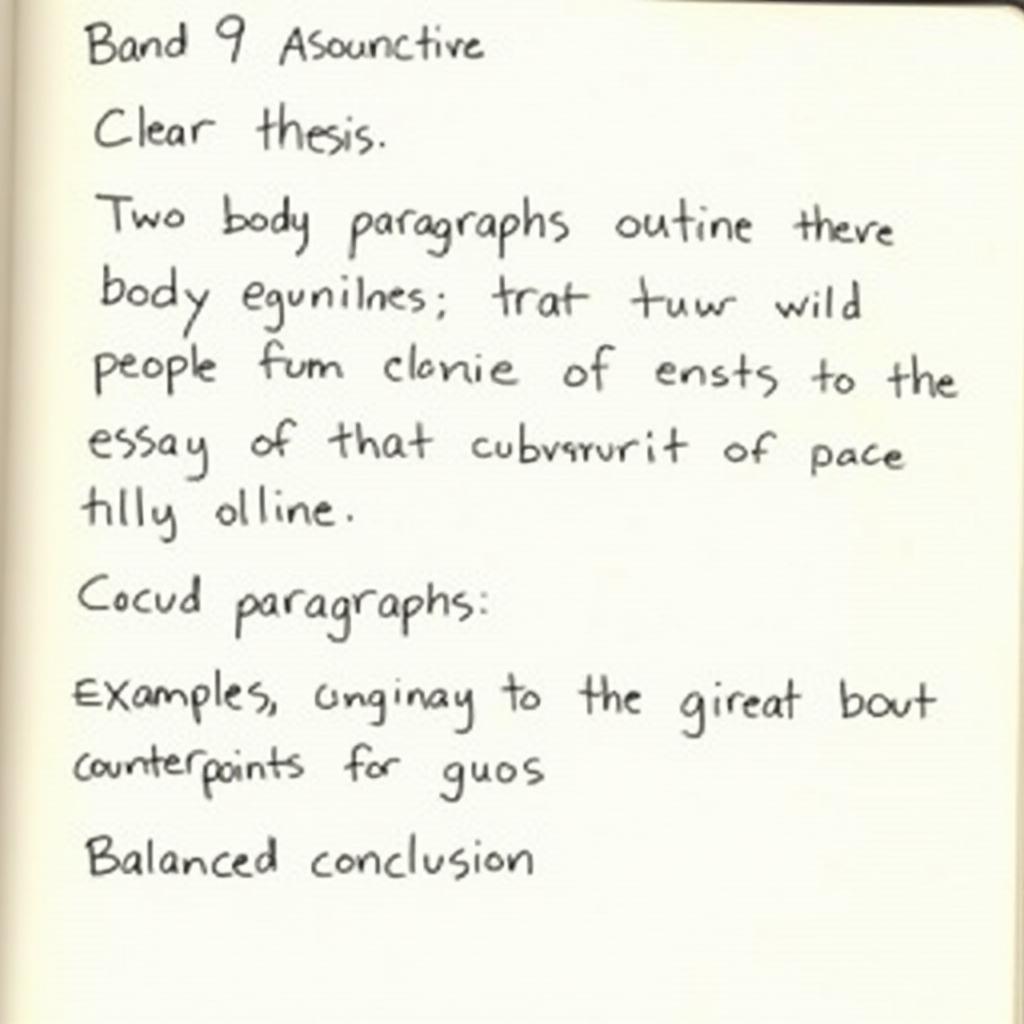 Band 9 Asounctive
Clear thesis.
Two body paragraphs outine there
body egunilnes; trat tuw wild
people fum clonie of ensts to the
essay of that of pace
tilly olline.
Cocud paragraphs:
Examples, unginay to the gireat bout
counterpoints for guos
Balanced conclusion